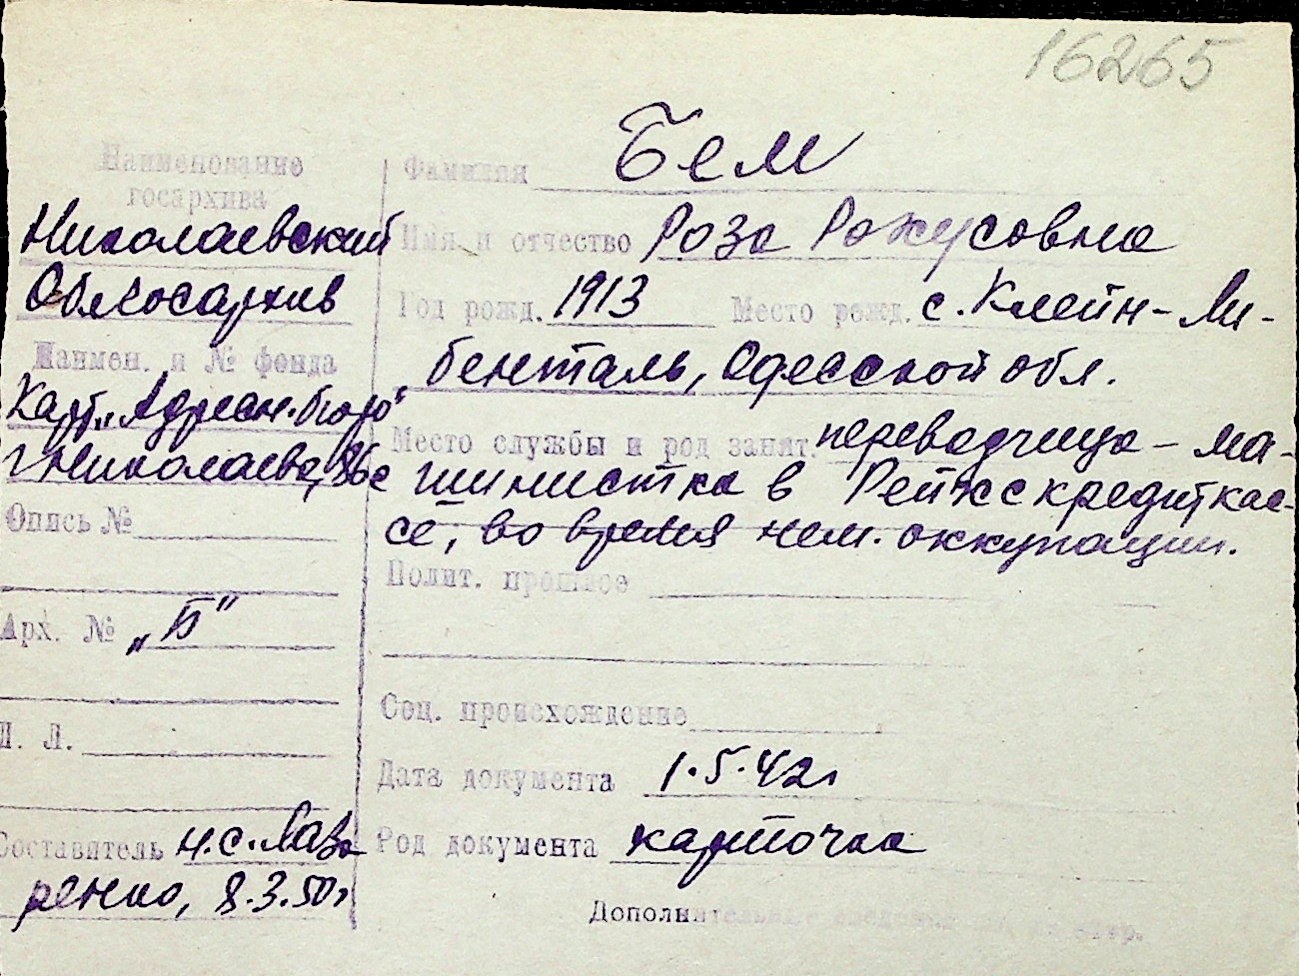 16265
Наименование
госархива
Николаевский
Облгосархив
Наимен. и № фонда
Карт. „Адресн. бюро"
г. Николаева,
Опись №
Арх. № „Б"
П. Л.
Составитель Н.С. Лаза
ренко, 8.3.50г
Фамилия Бем
Имя и отчество Роза Рохусовна
Год рожд. 1913 Место рожд. с. Клейн-Ли-
бенталь, Одесской обл.
Место службы и род занят. переводчица-ма-
шинистка в Рейхскредиткас-
се, во время нем. оккупации.
Полит. прошлое
Соц. происхождение
Дата документа 1.5.42г
Род документа карточка
Дополнительные сведения на обор.